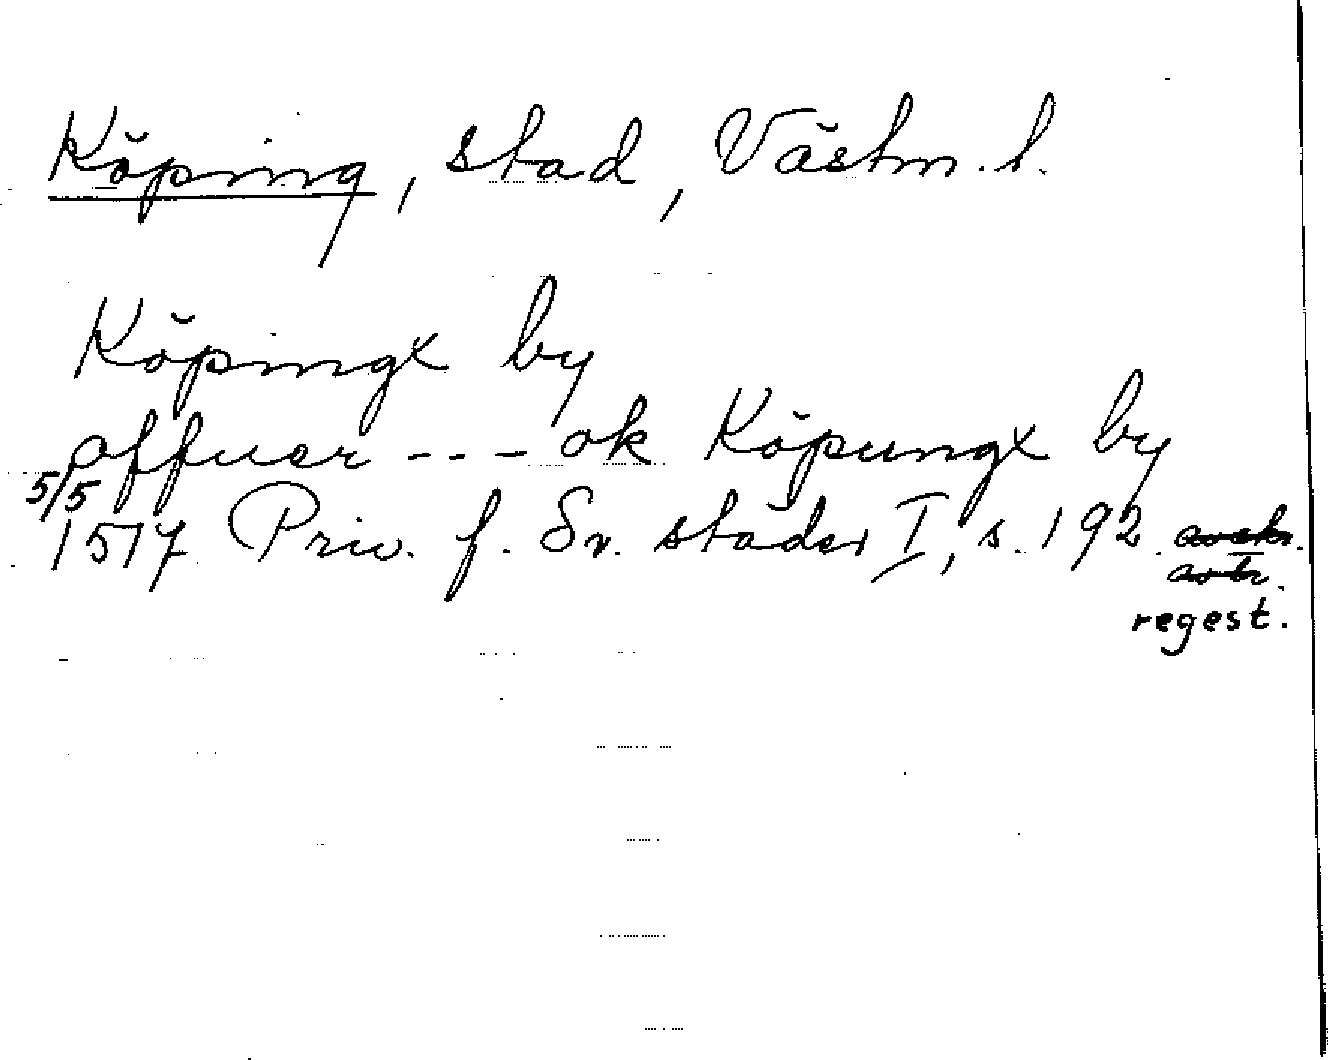 Köping, stad, Västm. l.
Köpingx by
offuer --- ok Köpungx by
5/5
1517 Priv. f. Sv. städer I, s. 192 avskr.
avtr.
regest.